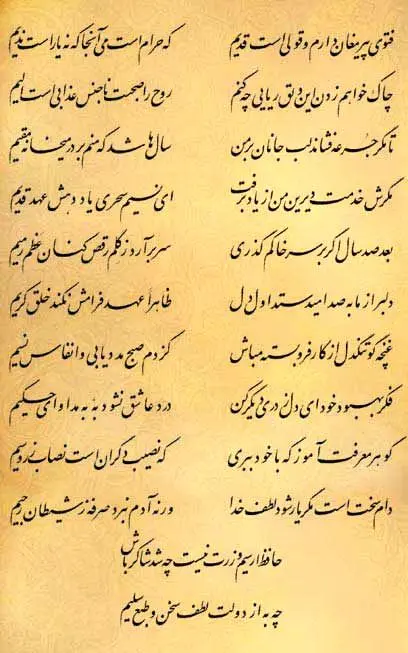 فتوی پیر مغان دارم و قولی است قدیم    که حرام است می آنجا که نه یار است ندیم
چاک خواهم زدن این دلق ریایی چه کنم    روح را صحبت ناجنس عذابی است الیم
تا مگر جرعه فشاند لب جانان بر من    سال‌ها شد که منم بر در میخانه مقیم
مگرش خدمت دیرین من از یاد برفت    ای نسیم سحری یاد دهش عهد قدیم
بعد صد سال اگر بر سر خاکم گذری    سر برآرد ز گلم رقص کنان عظم رمیم
دلبر از ما به صد امید ستد اول دل    ظاهراً عهد فرامش نکند خلق کریم
غنچه گو تنگدل از کار فروبسته مباش    کز دم صبح مدد یابی و انفاس نسیم
فکر بهبود خود ای دل ز دری دیگر کن    درد عاشق نشود به به مداوای حکیم
گوهر معرفت آموز که با خود ببری    که نصیب دگران است نصاب زر و سیم
دام سخت است مگر یار شود لطف خدا    ورنه آدم نبرد صرفه ز شیطان رجیم
حافظ ار سیم و زرت نیست چه شد شاکر باش
چه به از دولت لطف سخن و طبع سلیم